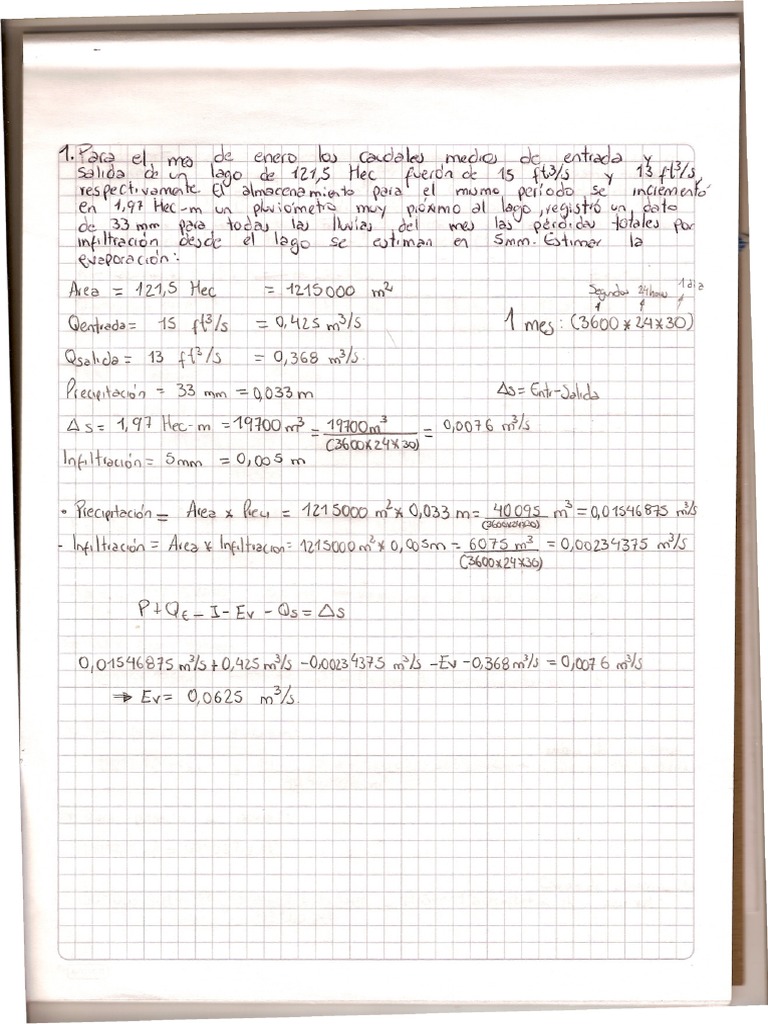 1. Para el mes de enero los caudales medios de entrada y
salida de un lago de 121,5 Hec fuerón de 15 ft3/s y 13 ft3/s,
respectivamente. El almacenamiento para el mismo período se incrementó
en 1,97 Hec-m un pluviómetro muy próximo al lago, registró un dato
de 33 mm para todas las lluvias del mes las pérdidas totales por
infiltración desde el lago se estiman en 5mm. Estimar la
evaporación:
Area = 121,5 Hec = 1215000 m²
Segundos 24horas 1 dia
Qentrada = 15 ft³/s = 0,425 m³/s
1 mes: (3600*24*30)
Qsalida = 13 ft³/s = 0,368 m³/s.
Precipitación = 33 mm = 0,033 m
Δs = Entr-Salida
Δs = 1,97 Hec-m = 19700 m³ = 19700m³/(3600x24x30) = 0,0076 m³/s
Infiltración = 5mm = 0,005 m
• Precipitación = Area x Preci = 1215000 m² * 0,033 m = 40095/(3600x24x30) m³ = 0,01546875 m³/s
- Infiltración = Area x Infiltracion = 1215000m² * 0,005m = 6075 m³/(3600x24x30) = 0,00234375 m³/s
P + QE - I - Ev - Qs = Δs
0,01546875 m³/s + 0,425 m³/s - 0,00234375 m³/s - Ev - 0,368 m³/s = 0,0076 m³/s
⇒ Ev = 0,0625 m³/s.